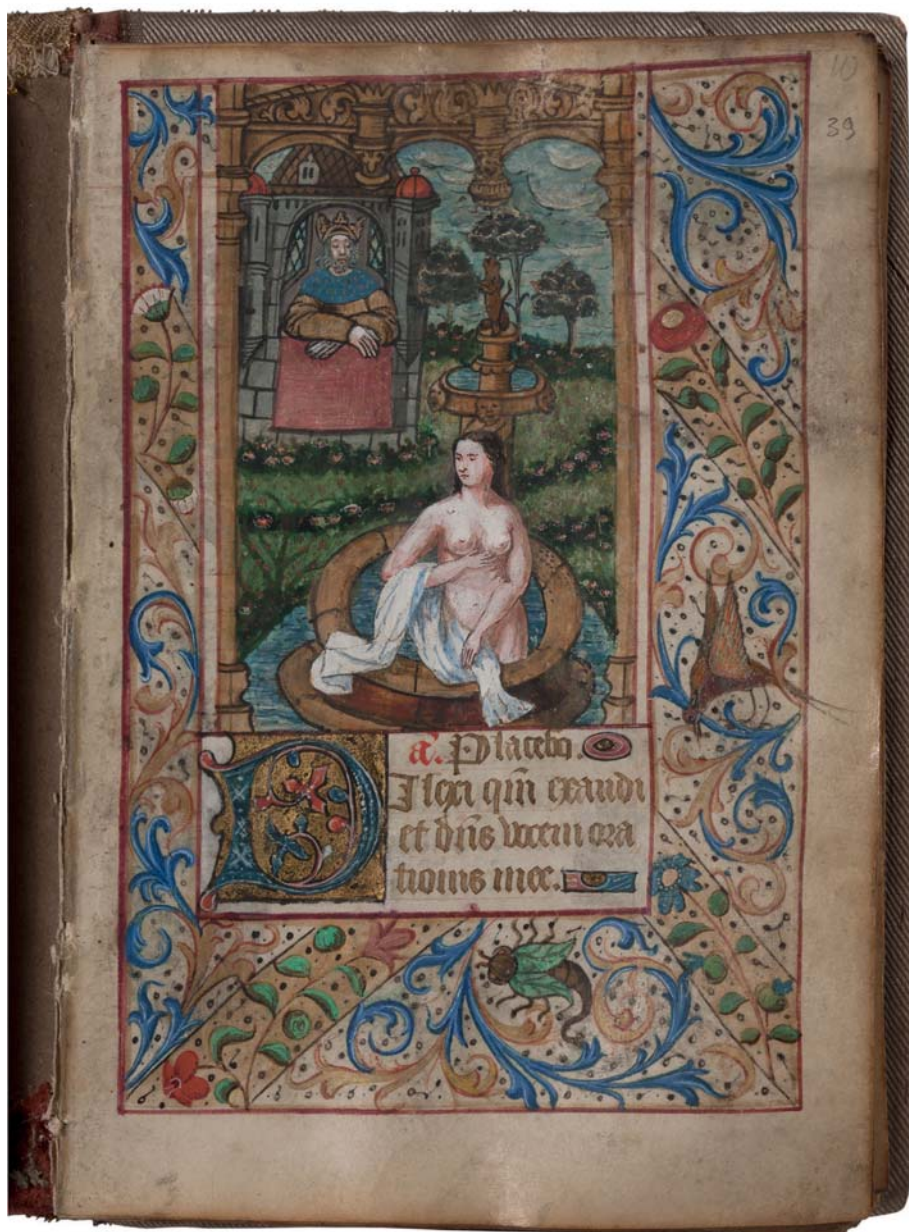 39
a. Placebo.
Dilexi qm̄ exaudi
et dn̄s vocem ora
tionis mee.